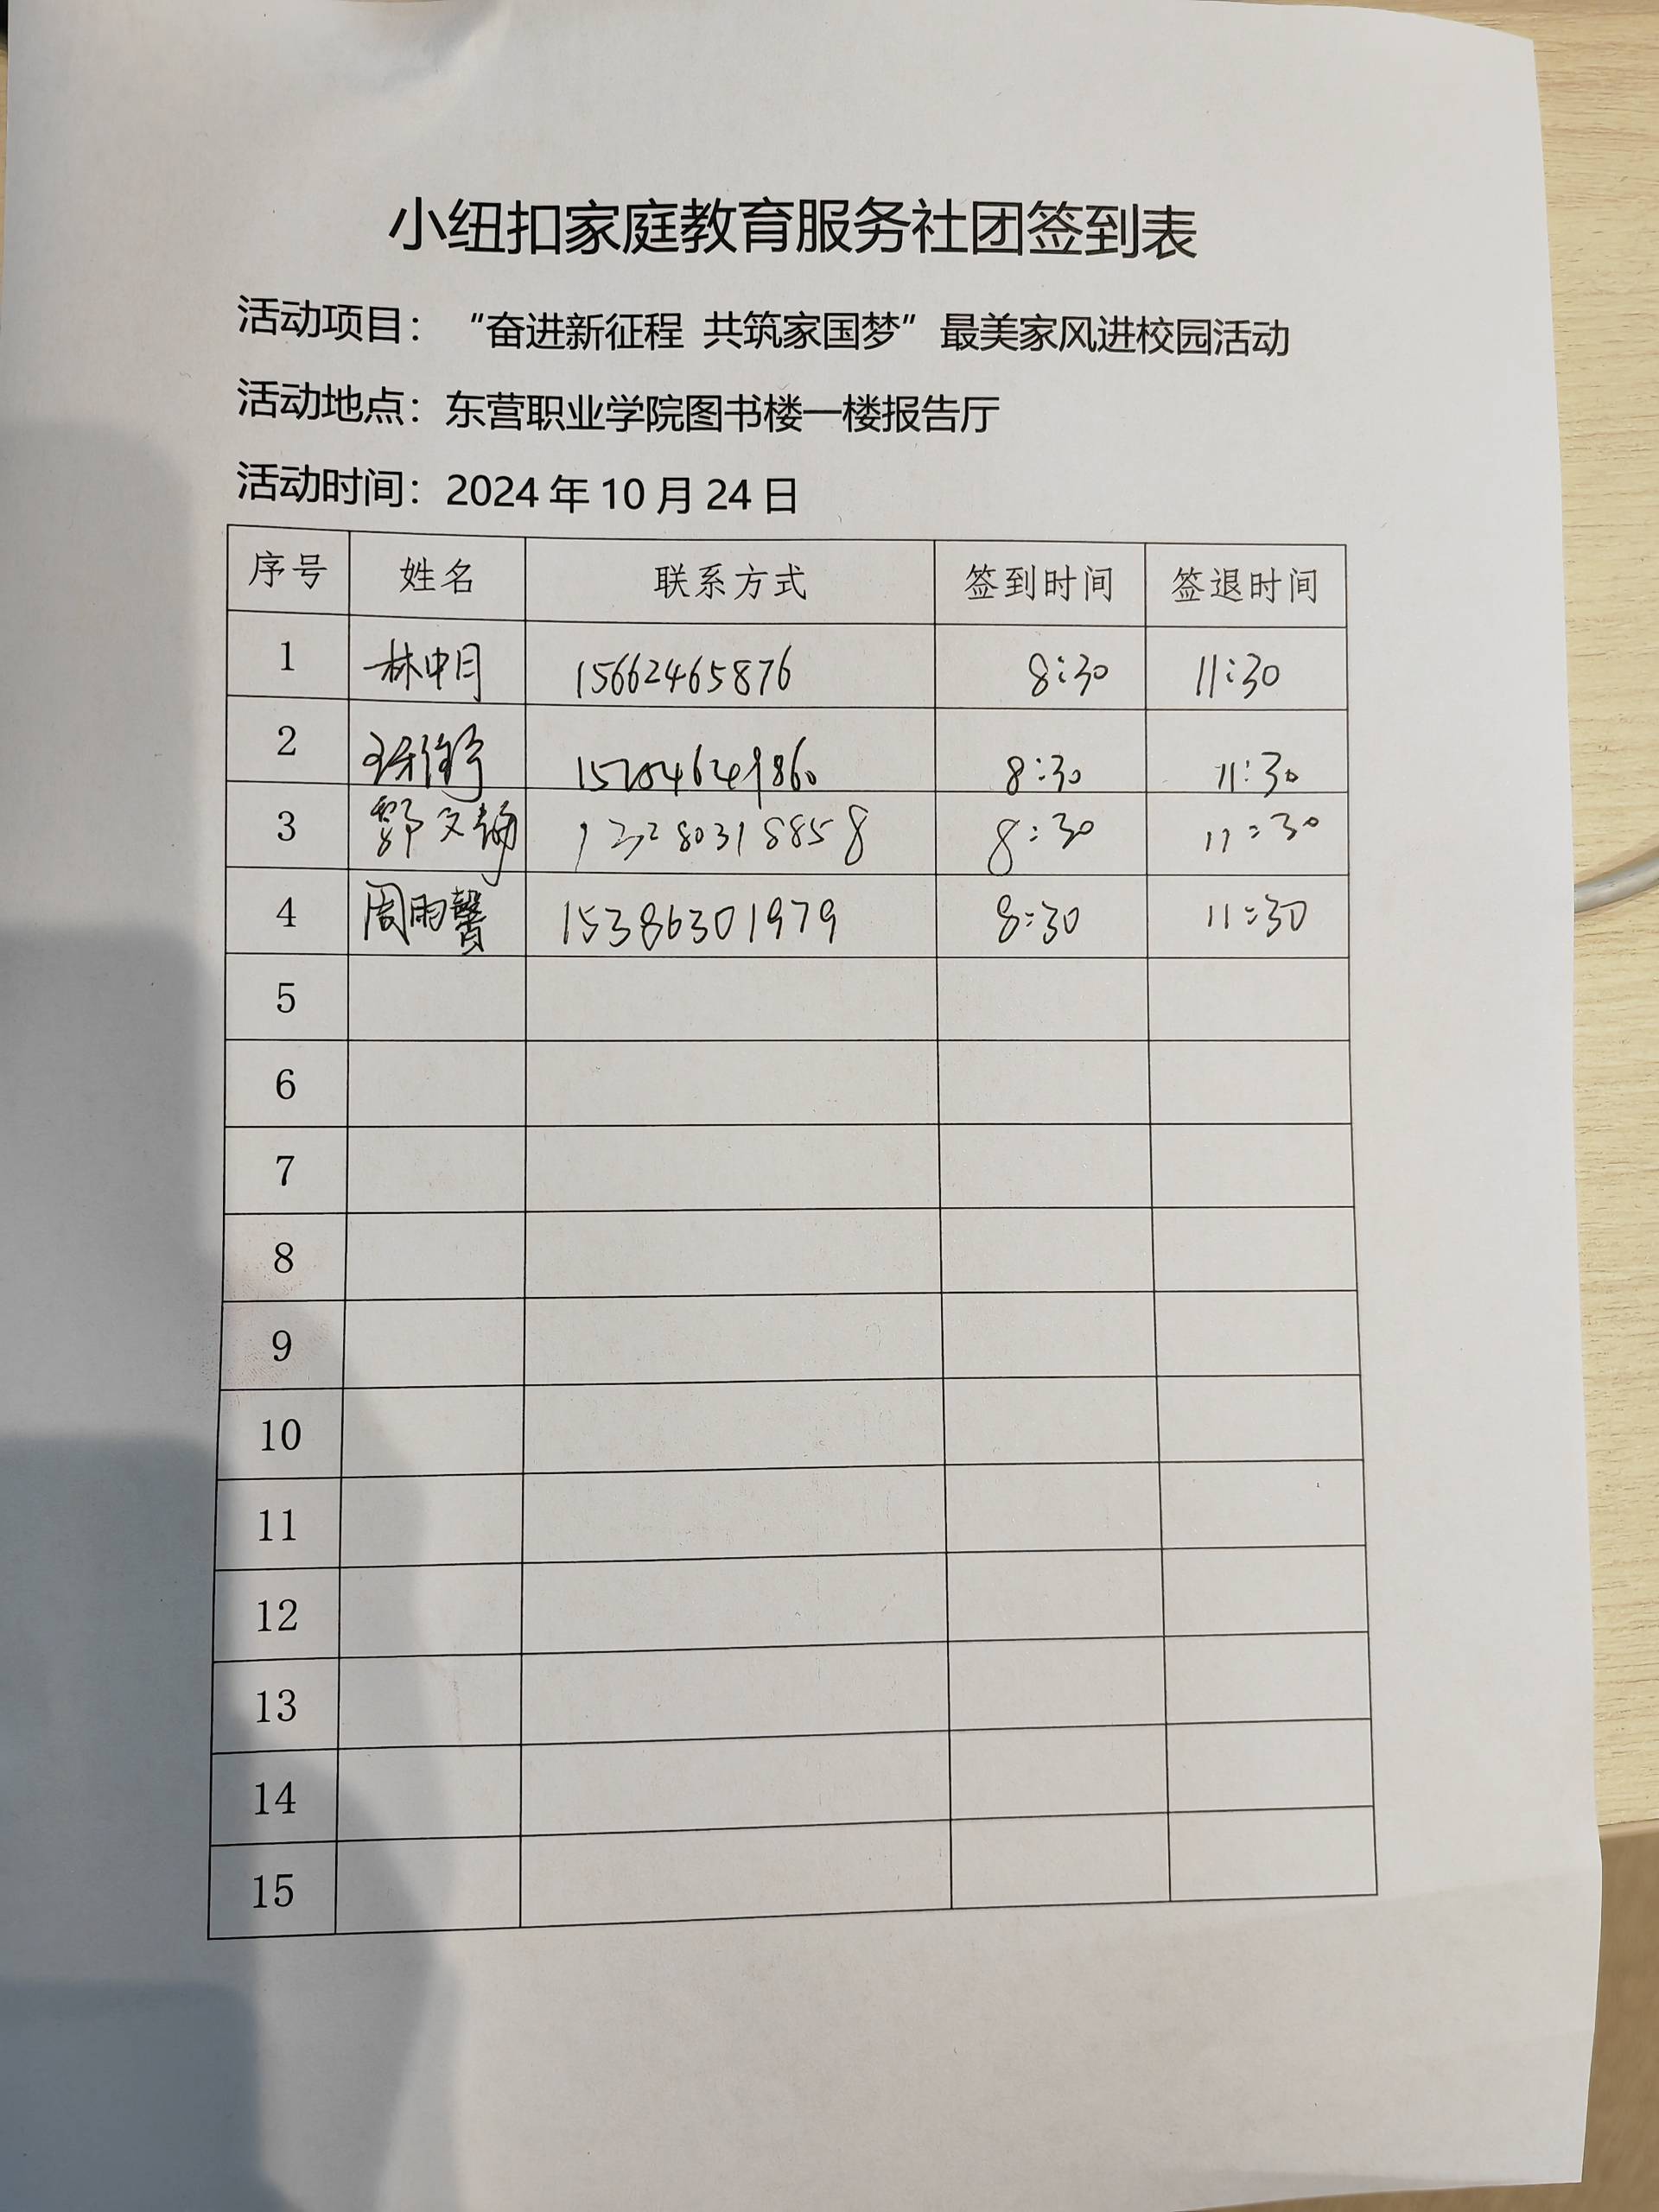 小纽扣家庭教育服务社团签到表
活动项目：“奋进新征程 共筑家国梦”最美家风进校园活动
活动地点：东营职业学院图书楼一楼报告厅
活动时间：2024年10月24日
序号 姓名 联系方式 签到时间 签退时间
1 林中月 15662465876 8:30 11:30
2 8:30 11:30
3 8:30 11:30
4 周雨馨 15386301979 8:30 11:30
5
6
7
8
9
10
11
12
13
14
15